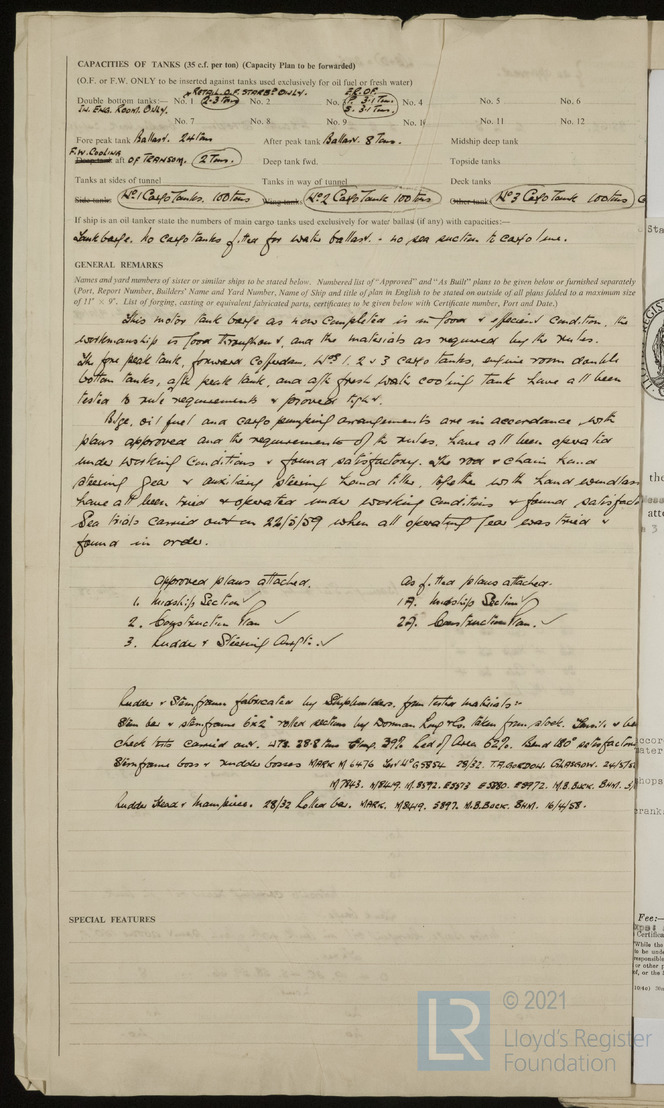 CAPACITIES OF TANKS (35 c.f. per ton) (Capacity Plan to be forwarded)
(O.F. or F.W. ONLY to be inserted against tanks used exclusively for oil fuel or fresh water)
RETAIL O.F. STARBD ONLY. E.R. O.F.
Double bottom tanks:— No. 1 2.3 Tons No. 2 No. P. 3.1 Tons No. 4 No. 5 No. 6
IN ENG. ROOM ONLY. S. 3.1 Tons
No. 7 No. 8 No. 9 No. 10 No. 11 No. 12
Fore peak tank Ballast. 24 tons After peak tank Ballast 8 Tons. Midship deep tank
F.W. COOLING
Deep tank aft OF TRANSOM. 2 Tons. Deep tank fwd. Topside tanks
Tanks at sides of tunnel Tanks in way of tunnel Deck tanks
Side tanks No 1 Cargo Tanks. 100 tons Wing tanks No 2 Cargo Tank 100 tons Other tanks No 3 Cargo Tank 100 tons
If ship is an oil tanker state the numbers of main cargo tanks used exclusively for water ballast (if any) with capacities:—
Tank barge. No cargo tanks fitted for water ballast. - no sea suction to cargo line.
GENERAL REMARKS
Names and yard numbers of sister or similar ships to be stated below. Numbered list of "Approved" and "As Built" plans to be given below or furnished separately
(Port, Report Number, Builders' Name and Yard Number, Name of Ship and title of plan in English to be stated on outside of all plans folded to a maximum size
of 11" × 9". List of forging, casting or equivalent fabricated parts, certificates to be given below with Certificate number, Port and Date.)
This motor tank barge as now completed is in good & efficient condition, the
workmanship is good throughout, and the materials as required by the rules.
The fore peak tank, forward cofferdam, Nos 1. 2 & 3 cargo tanks, engine room double
bottom tanks, aft peak tank, and aft fresh water cooling tank have all been
tested to rule requirements & proved tight.
Bilge, oil fuel and cargo pumping arrangements are in accordance with
plans approved and the requirements of the rules, have all been operated
under working conditions & found satisfactory. The rod & chain hand
steering gear & auxiliary steering hand tiller, together with hand windlass
have all been tried & operated under working conditions & found satisfact
Sea trials carried out on 22/5/59 when all operating gear was tried &
found in order.
Approved plans attached. As fitted plans attached.
1. Midship Section ✓ 1A. Midship Section ✓
2. Construction Plan ✓ 2A. Construction Plan. ✓
3. Rudder & Steering Arrgt. ✓
Rudder & Sternframe fabricated by Shipbuilders, from tested materials:-
Stem bar & sternframe 6"x2" rolled sections by Dorman Long & Co. taken from stock. Tensile &
check tests carried out. UTS. 28.8 tons Elong. 39% Red of Area 62%. Bend 180° satisfactory
Sternframe boss & rudder bosses MARK M 6476 G5854 28/32 T.A. GORDON. GLASGOW. 24/5/
M7843. M8449. M.8592. E5873 E5880. E5972. M.B. BUCK. BHM.
Rudder Head & Mainpiece. 28/32 Rolled bar. MARK. M8449. 5897. M.B. BUCK. BHM. 16/4/58.
SPECIAL FEATURES
Fee:—
© 2021
LR
Lloyd's Register
Foundation